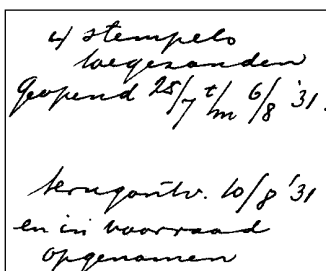 4 stempels
toegezonden
Geopend 25/7 t/m 6/8 '31.
terugontv. 10/8 '31
en in voorraad
opgenomen